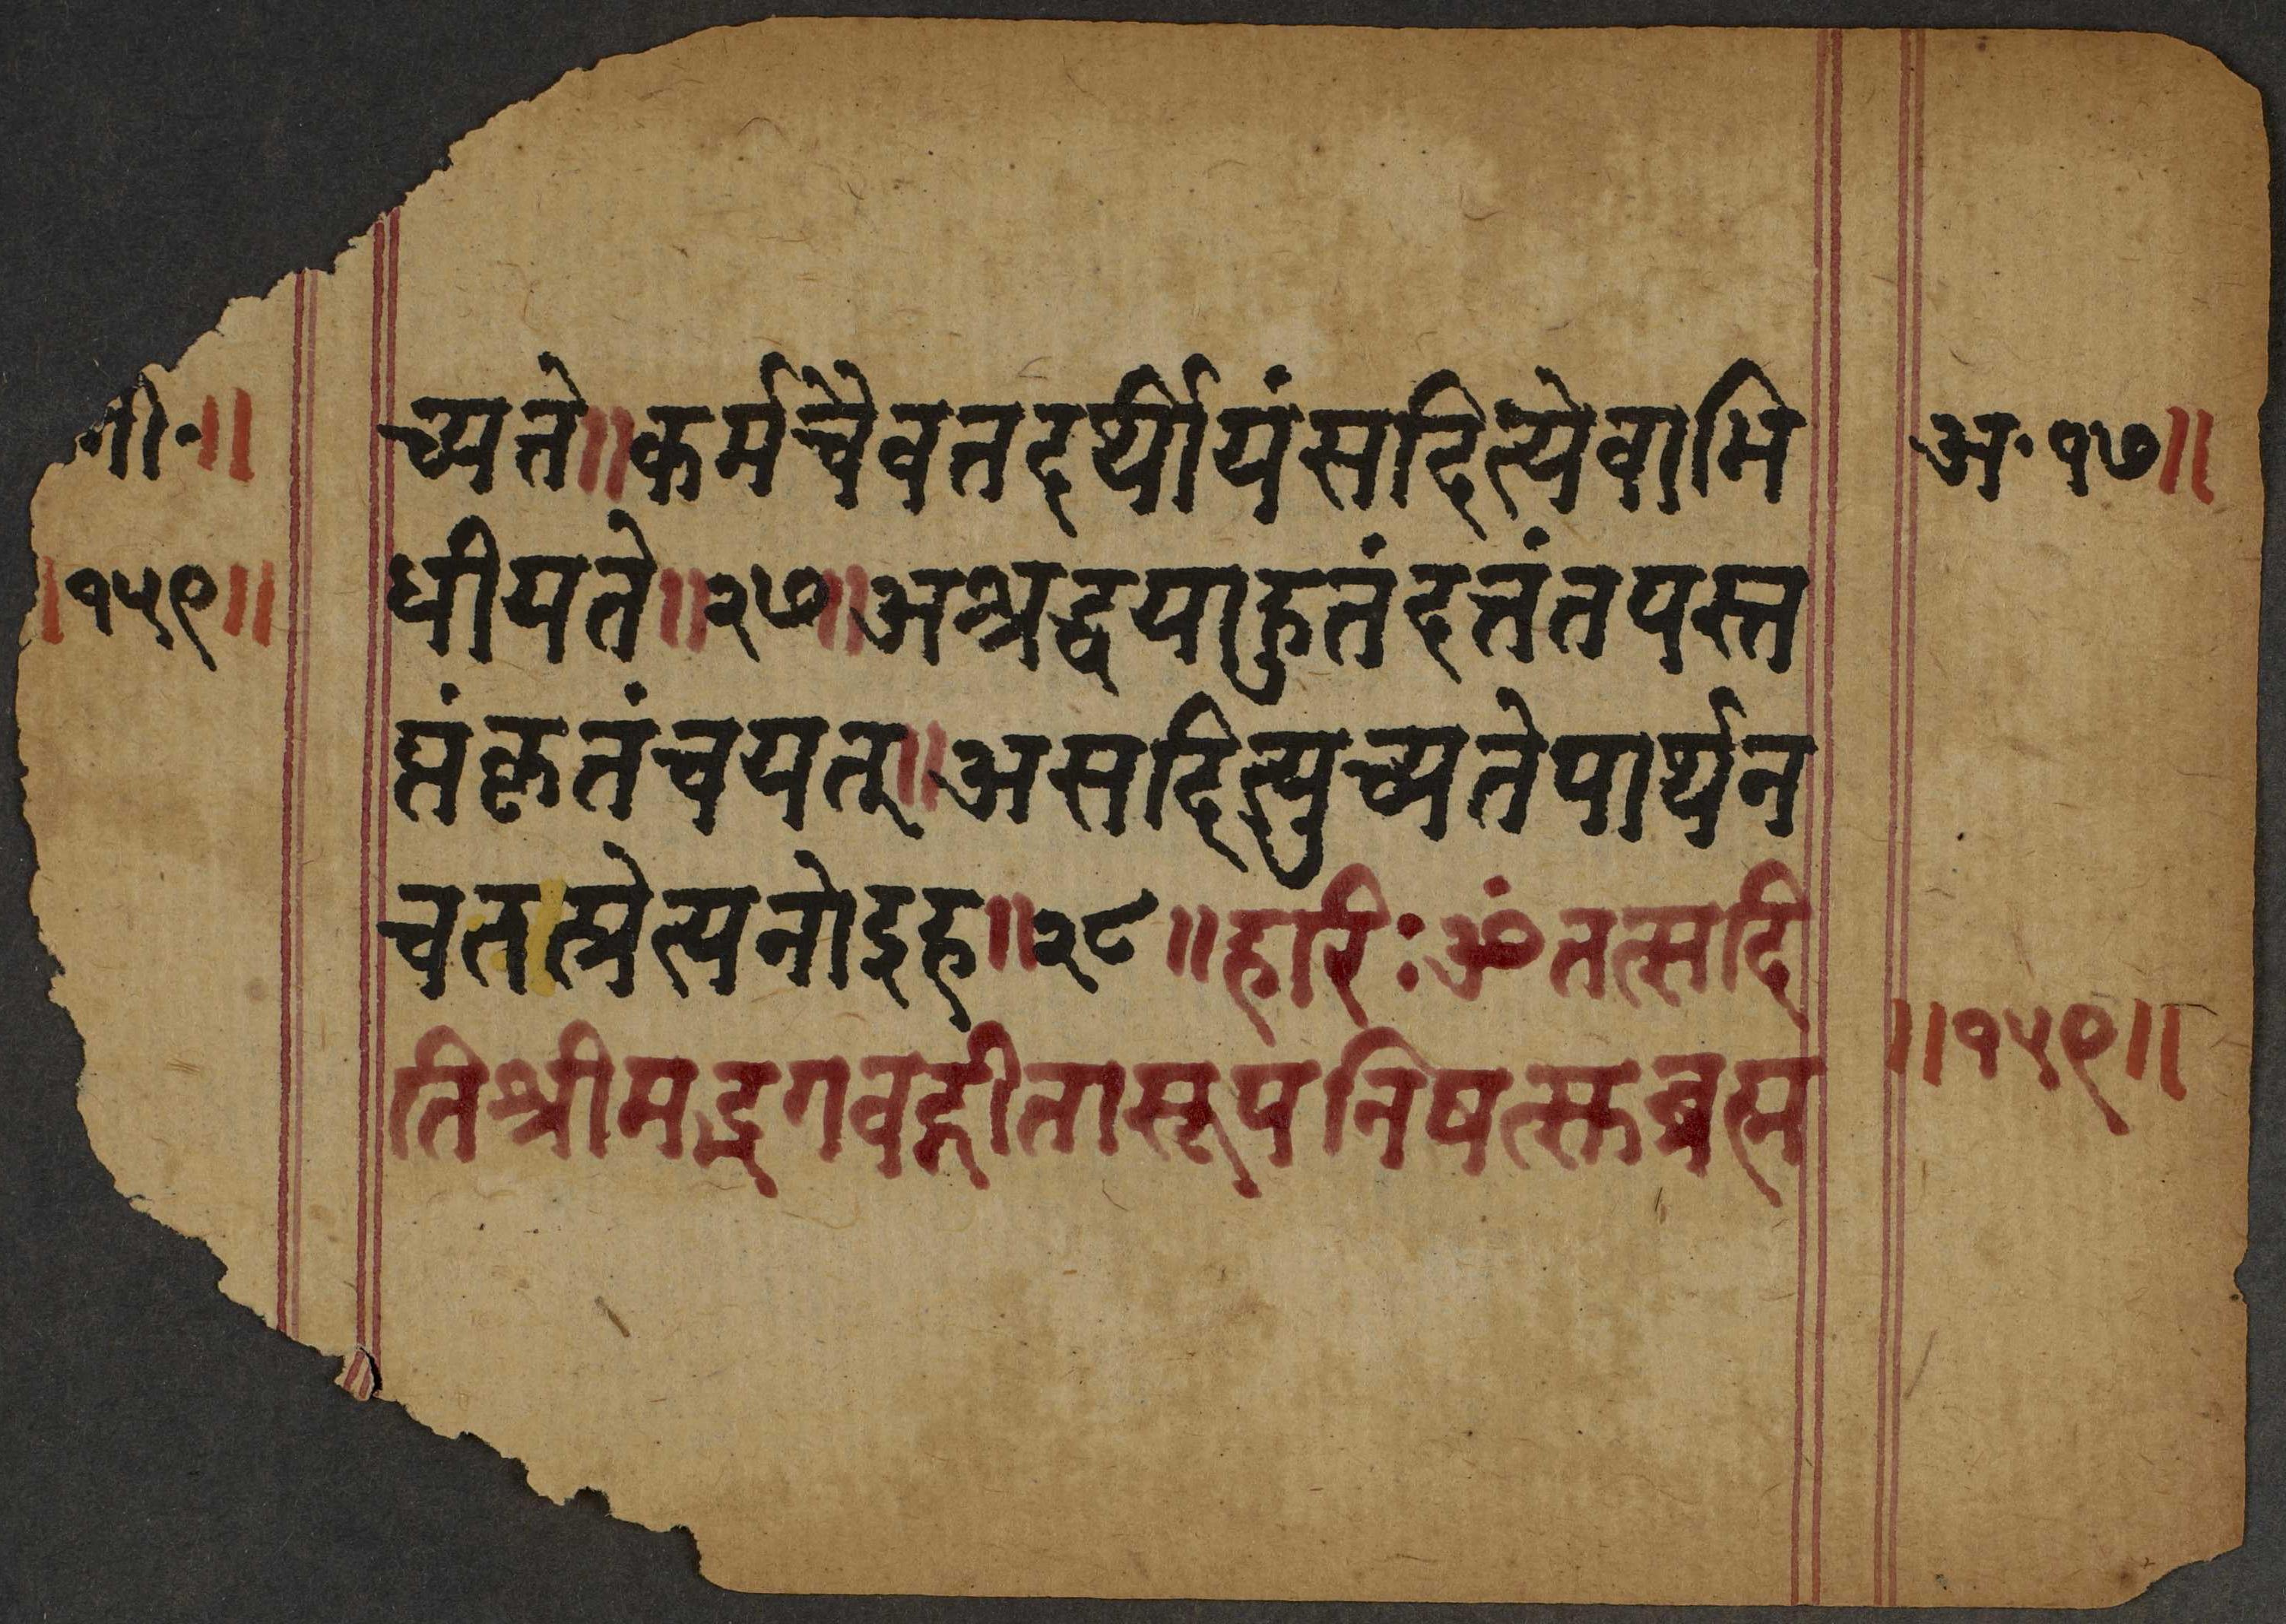 गी॰॥
॥१५९॥
च्यते॥कर्मचैवतदर्थीयंसदित्येवाभि
धीयते॥२७॥अश्रद्धयाहुतंदत्तंतपस्त
प्तंकृतंचयत्॥असदित्युच्यतेपार्थन
चतत्प्रेत्यनोइह॥२८॥हरिःॐतत्सदि
तिश्रीमद्भगवद्गीतासूपनिषत्सुब्रह्म
अ॰१७॥
॥१५९॥